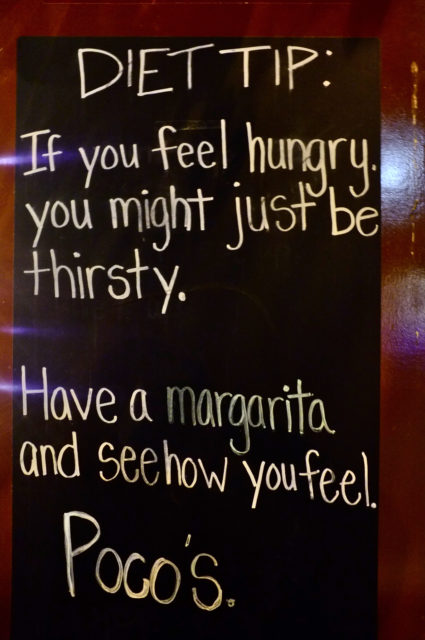 DIET TIP:
If you feel hungry.
you might just be
thirsty.
Have a margarita
and see how you feel.
Poco's.